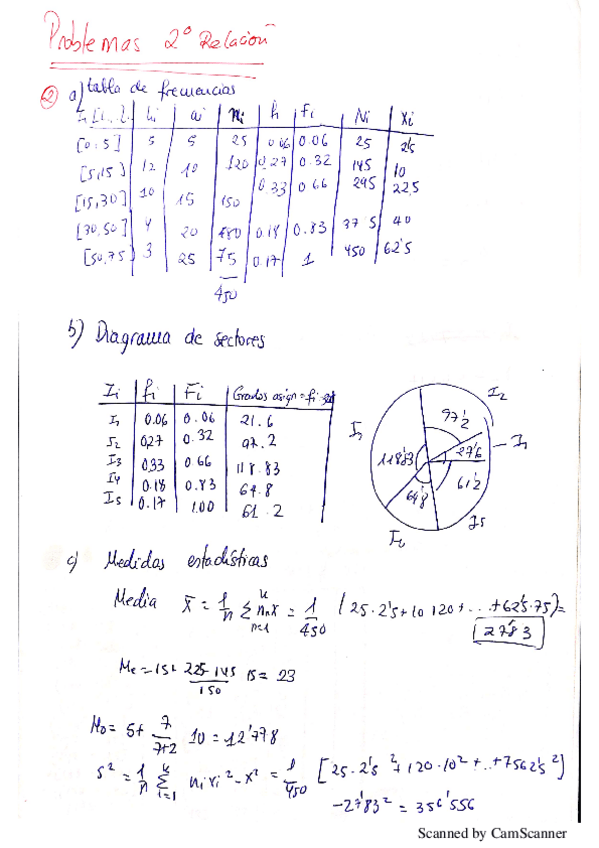 Problemas 2º Relación
2) a) tabla de frecuencias
hi ai ni fi Fi Ni xi
[0,5] 5 5 25 0.06 0.06 25 2'5
[5,15) 12 10 120 0.27 0.32 145 10
[15,30] 10 15 150 0.33 0.66 295 22'5
[30,50] 4 20 80 0.18 0.83 375 40
[50,75) 3 25 75 0.17 1 450 62'5
450
b) Diagrama de sectores
Ii fi Fi Grados asign = fi
I1 0.06 0.06 21.6
I2 0.27 0.32 97.2
I3 0.33 0.66 118.83
I4 0.18 0.83 64.8
I5 0.17 1.00 61.2
I2
97'2
I1
118'83
64'8
61'2
I5
c) Medidas estadísticas
Media x̄ = 1/n Σ = 1/450 (25·2'5+10 120+...+62'5·75)=
27'83
Me = 15+ 225-145/150 15 = 23
Mo = 5+ 7/7+2 10 = 12'778
s² = 1/n Σ ni xi² - x̄² = 1/450 [25·2'5²+120·10²+..+75 62'5²]
-27'83² = 356'556
Scanned by CamScanner